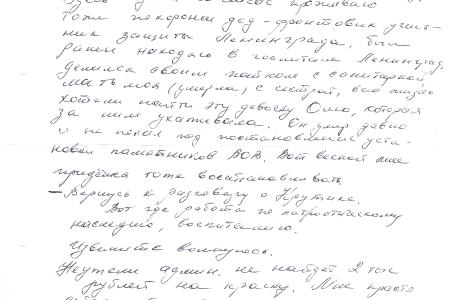 тоже похоронен дед-фронтовик участ-
ник защиты Ленинграда, был
ранен находясь в госпитале Ленинград.
делился своим пайком с санитаркой
мать моя (умерла) с сестрой, всю жизнь
хотели найти эту девочку Олю, которая
за ним ухаживала. Он умер давно
и не попал под постановление уста-
новки памятников ВОВ. Вот весной мне
придётся тоже восстанавливать.
– Вернусь к разговору о Крутике.
Вот где работа по патриотическому
наследию, воспитанию.
Извините волнуюсь.
Неужели админ. не найдёт 2 тыс
рублей на краску. Мне просто